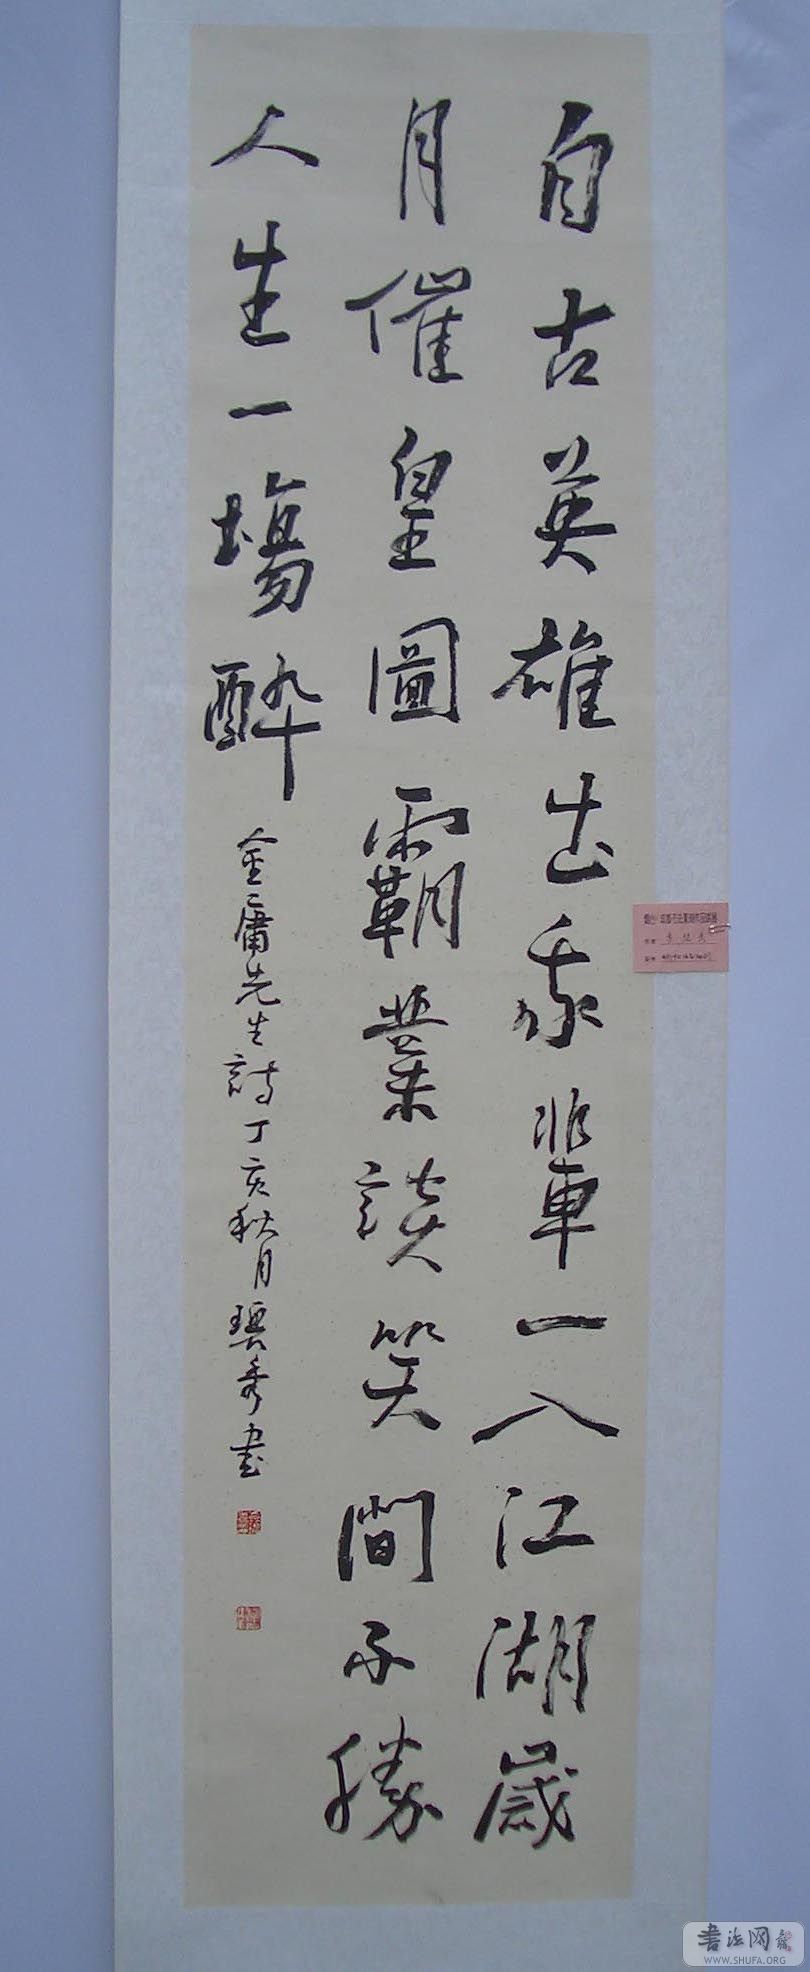 自古英雄出我輩一入江湖歲
月催皇圖霸業談笑間不勝
人生一場醉
金庸先生詩丁亥秋月碧秀書
书法网
WWW.SHUFA.ORG